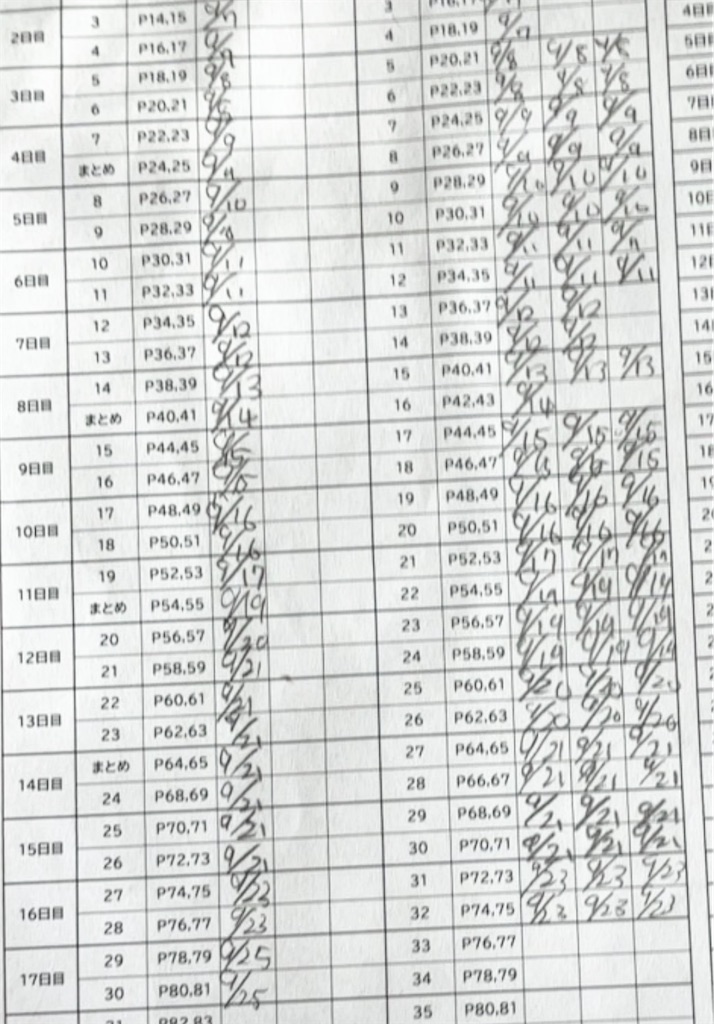 2日目 3 P14,15 9/7
4 P16,17 9/7
3日目 5 P18,19 9/8
6 P20,21
4日目 7 P22,23 9/9
まとめ P24,25 9/9
5日目 8 P26,27 9/10
9 P28,29
6日目 10 P30,31 9/11
11 P32,33 9/11
7日目 12 P34,35 9/12
13 P36,37 9/12
8日目 14 P38,39 9/13
まとめ P40,41 9/14
9日目 15 P44,45 9/15
16 P46,47 9/15
10日目 17 P48,49 9/16
18 P50,51 9/16
11日目 19 P52,53 9/17
まとめ P54,55 9/19
12日目 20 P56,57 9/20
21 P58,59 9/21
13日目 22 P60,61 9/21
23 P62,63 9/21
14日目 まとめ P64,65 9/21
24 P68,69 9/21
15日目 25 P70,71 9/21
26 P72,73 9/21
16日目 27 P74,75 9/23
28 P76,77 9/23
17日目 29 P78,79 9/25
30 P80,81 9/25
31 P82,83
3 P16,17
4 P18,19 9/7
5 P20,21 9/8 9/8 9/8
6 P22,23 9/8 9/8 9/8
7 P24,25 9/9 9/9 9/9
8 P26,27 9/9 9/9 9/9
9 P28,29 9/10 9/10 9/10
10 P30,31 9/10 9/10 9/10
11 P32,33 9/11 9/11 9/11
12 P34,35 9/11 9/11 9/11
13 P36,37 9/12 9/12
14 P38,39 9/12 9/12
15 P40,41 9/13 9/13 9/13
16 P42,43 9/14
17 P44,45 9/15 9/15 9/15
18 P46,47 9/15 9/15 9/15
19 P48,49 9/16 9/16 9/16
20 P50,51 9/16 9/16 9/16
21 P52,53 9/17 9/17 9/17
22 P54,55 9/19 9/19 9/19
23 P56,57 9/19 9/19 9/19
24 P58,59 9/19 9/19 9/19
25 P60,61 9/20 9/20 9/20
26 P62,63 9/20 9/20 9/20
27 P64,65 9/21 9/21 9/21
28 P66,67 9/21 9/21 9/21
29 P68,69 9/21 9/21 9/21
30 P70,71 9/21 9/21 9/21
31 P72,73 9/23 9/23 9/23
32 P74,75 9/23 9/23 9/23
33 P76,77
34 P78,79
35 P80,81
4日目
5日目
6日目
7日目
8日目